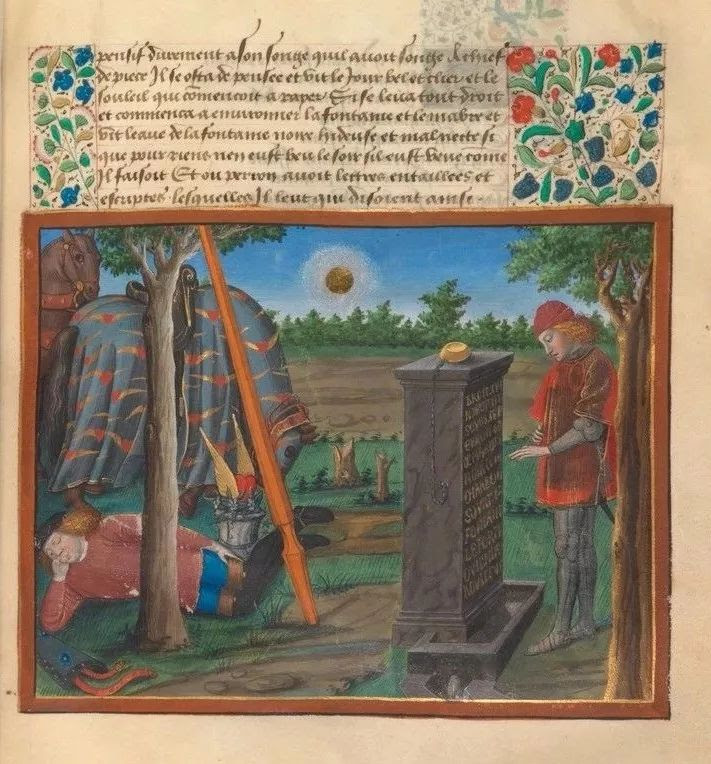 pensif durement a son songe quil auoit songe A chief
de piece Il se osta de pensee et vit le Jour bel et cler et le
souleil qui comencoit a rayer Si se leua tout droit
et commenca a enuironner la fontaine et le mabre et
vit leaue de la fontaine noire hideuse et malnecte si
que pour riens nen eust beu le soir sil eust veue comme
Il faisoit Et ou perron auoit lettres entaillees et
escriptes lesquelles Il leut qui disoient ainsi